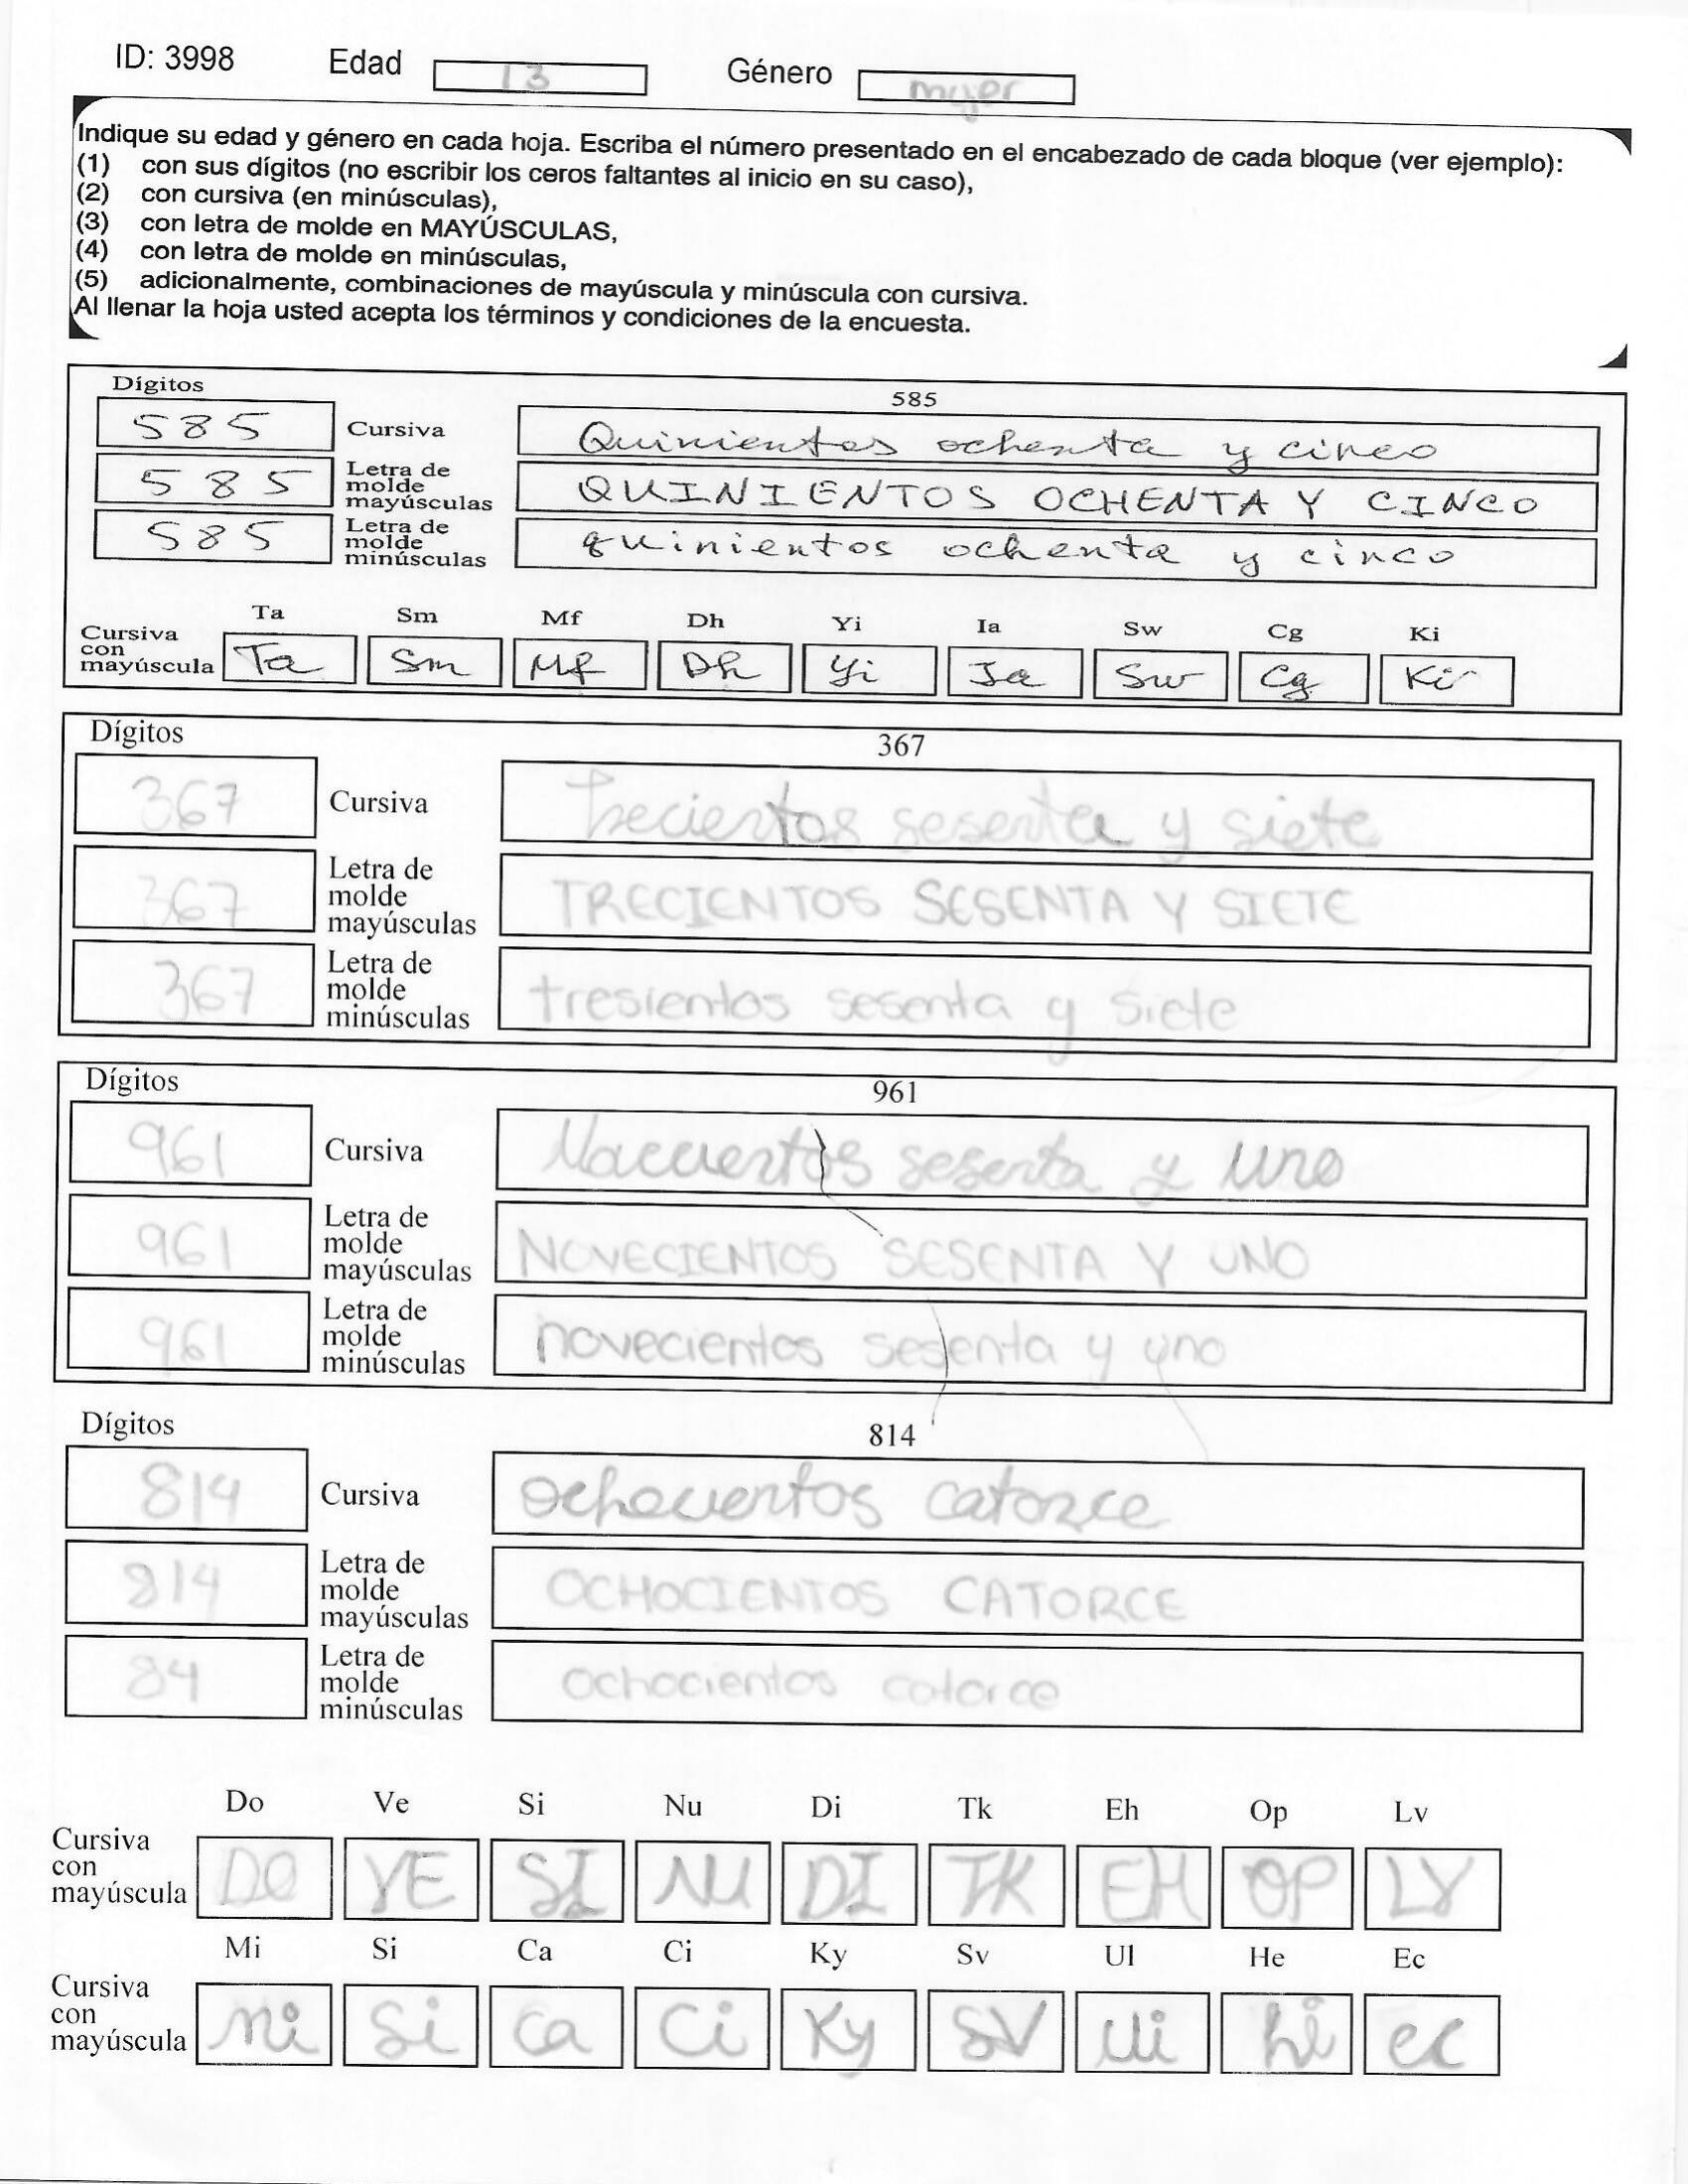 ID: 3998 Edad 13 Género mujer
Indique su edad y género en cada hoja. Escriba el número presentado en el encabezado de cada bloque (ver ejemplo):
(1) con sus dígitos (no escribir los ceros faltantes al inicio en su caso),
(2) con cursiva (en minúsculas),
(3) con letra de molde en MAYÚSCULAS,
(4) con letra de molde en minúsculas,
(5) adicionalmente, combinaciones de mayúscula y minúscula con cursiva.
Al llenar la hoja usted acepta los términos y condiciones de la encuesta.
Dígitos 585
585 Cursiva Quinientos ochenta y cinco
585 Letra de molde mayúsculas QUINIENTOS OCHENTA Y CINCO
585 Letra de molde minúsculas quinientos ochenta y cinco
Ta Sm Mf Dh Yi Ia Sw Cg Ki
Cursiva con mayúscula Ta Sm Mf Dh Yi Ia Sw Cg Ki
Dígitos 367
367 Cursiva Trecientos sesenta y siete
367 Letra de molde mayúsculas TRECIENTOS SESENTA Y SIETE
367 Letra de molde minúsculas tresientos sesenta y siete
Dígitos 961
961 Cursiva sesenta y uno
961 Letra de molde mayúsculas NOVECIENTOS SESENTA Y UNO
961 Letra de molde minúsculas novecientos sesenta y uno
Dígitos 814
814 Cursiva ochocientos catorce
814 Letra de molde mayúsculas OCHOCIENTOS CATORCE
84 Letra de molde minúsculas ochocientos catorce
Do Ve Si Nu Di Tk Eh Op Lv
Cursiva con mayúscula DO VE SI NU DI TK EH OP LV
Mi Si Ca Ci Ky Sv Ul He Ec
Cursiva con mayúscula mi Si ca Ci Ky SV Ui hi ec